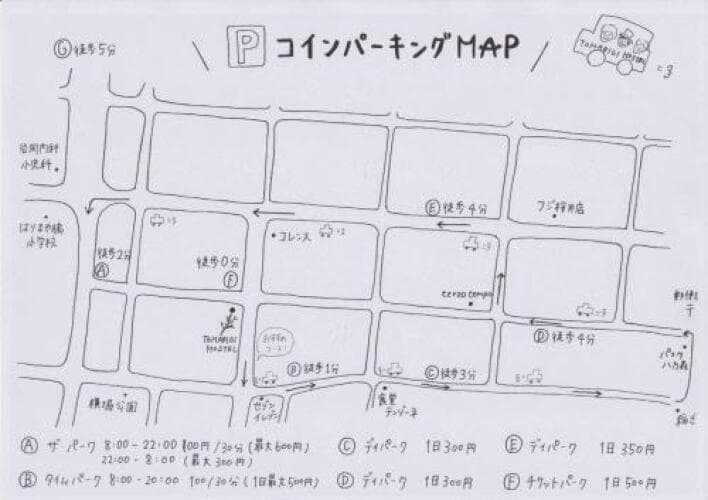 Ⓖ徒歩5分
P コインパーキングMAP
TOMARIGI HOSTEL
岩岡内科
小児科
Ⓔ徒歩4分
フジ桜井店
はりまや橋
小学校
コレンス
徒歩2分
Ⓐ
徒歩0分
Ⓕ
TOMARIGI
HOSTEL
コース!
Ⓑ徒歩1分
Ⓒ徒歩3分
Ⓓ徒歩4分
横堀公園
セブン
イレブン
食堂
Ⓐ ザ・パーク 8:00-22:00 100円/30分(最大600円)
22:00-8:00(最大300円)
Ⓑ タイムパーク 8:00-20:00 100/30分(1日最大500円)
Ⓒ デイパーク 1日300円
Ⓓ デイパーク 1日300円
Ⓔ デイパーク 1日350円
Ⓕ チケットパーク 1日500円